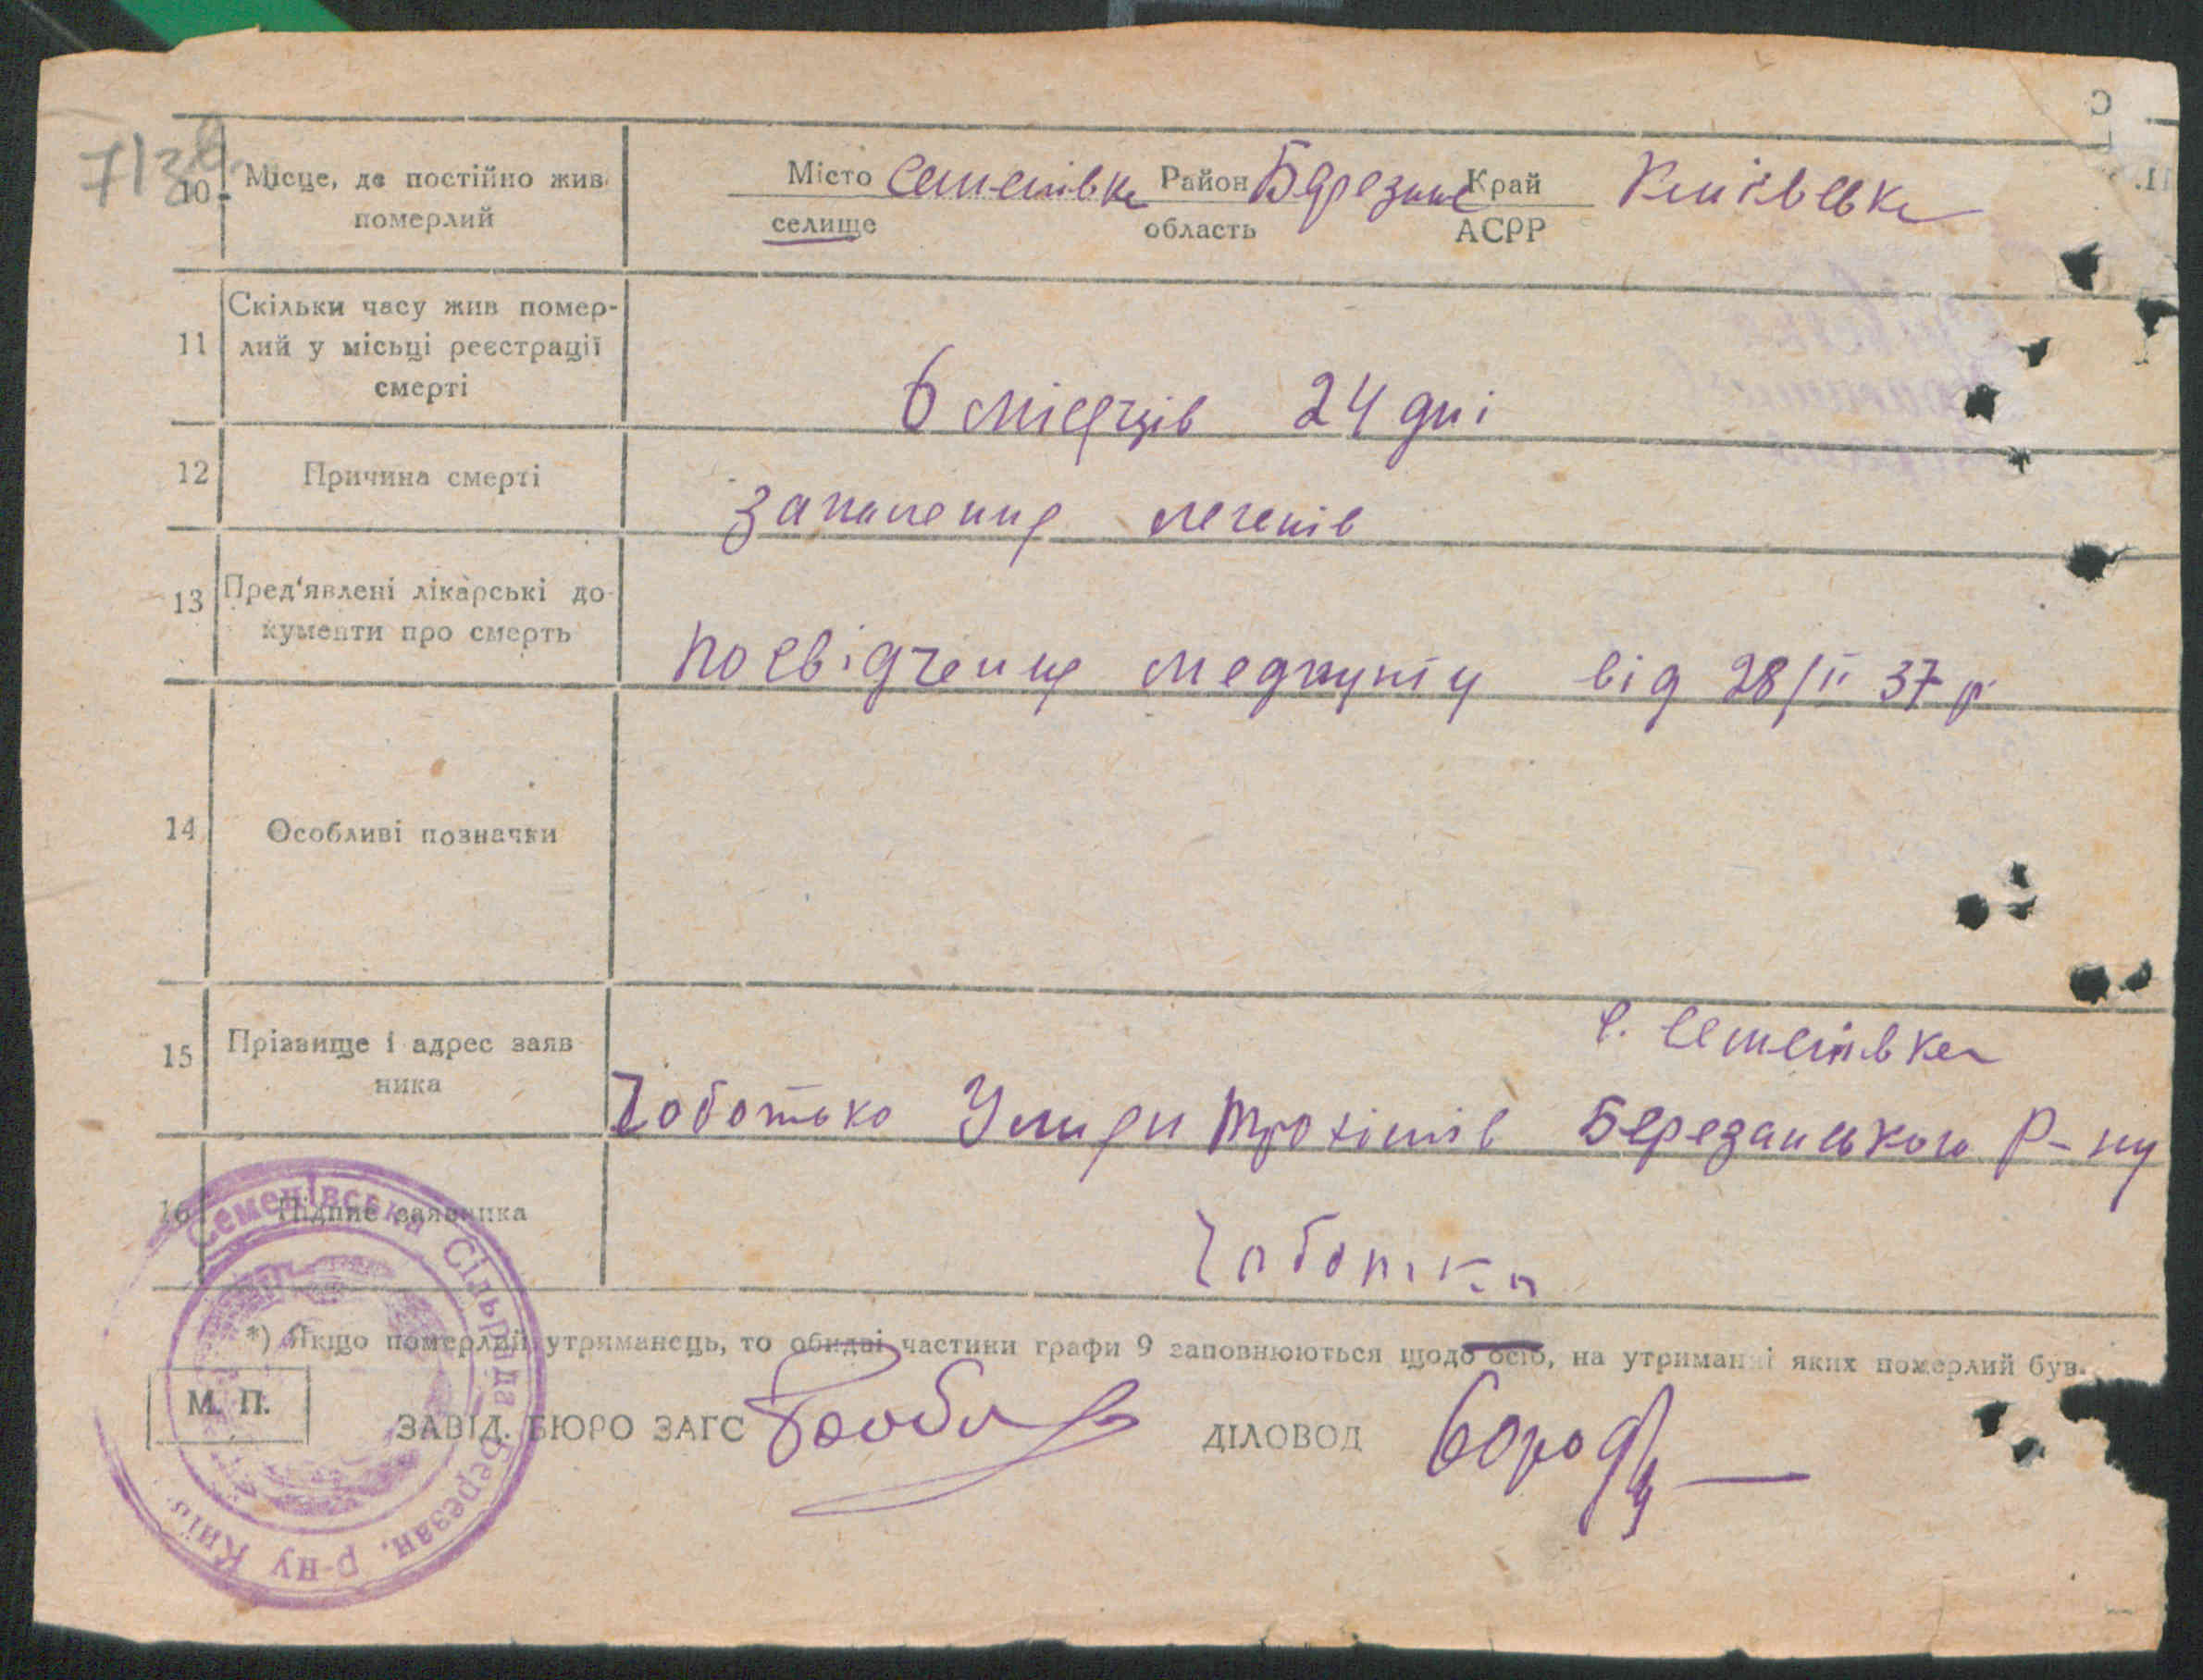 7138
10 Місце, де постійно жив померлий
Місто Семенівка Район Березань Край Київська
селище область АСРР
11 Скільки часу жив помер-
лий у місьці реєстрації
смерті
6 місяців 24 дні
12 Причина смерті
запалення легенів
13 Пред'явлені лікарські до-
кументи про смерть
посвідчення медпункту від 28/II 37 р
14 Особливі позначки
15 Прізвище і адрес заяв
ника
с. Семенівка
Чоботько Трохимів Березанського р-ну
16 Підпис заявника
*) Якщо померлий утриманець, то обидві частини графи 9 заповнюються щодо осіб, на утриманні яких померлий був.
М. П.
ЗАВІД. БЮРО ЗАГС ДІЛОВОД
Семенівська Сільрада Березан. р-ну Київ.